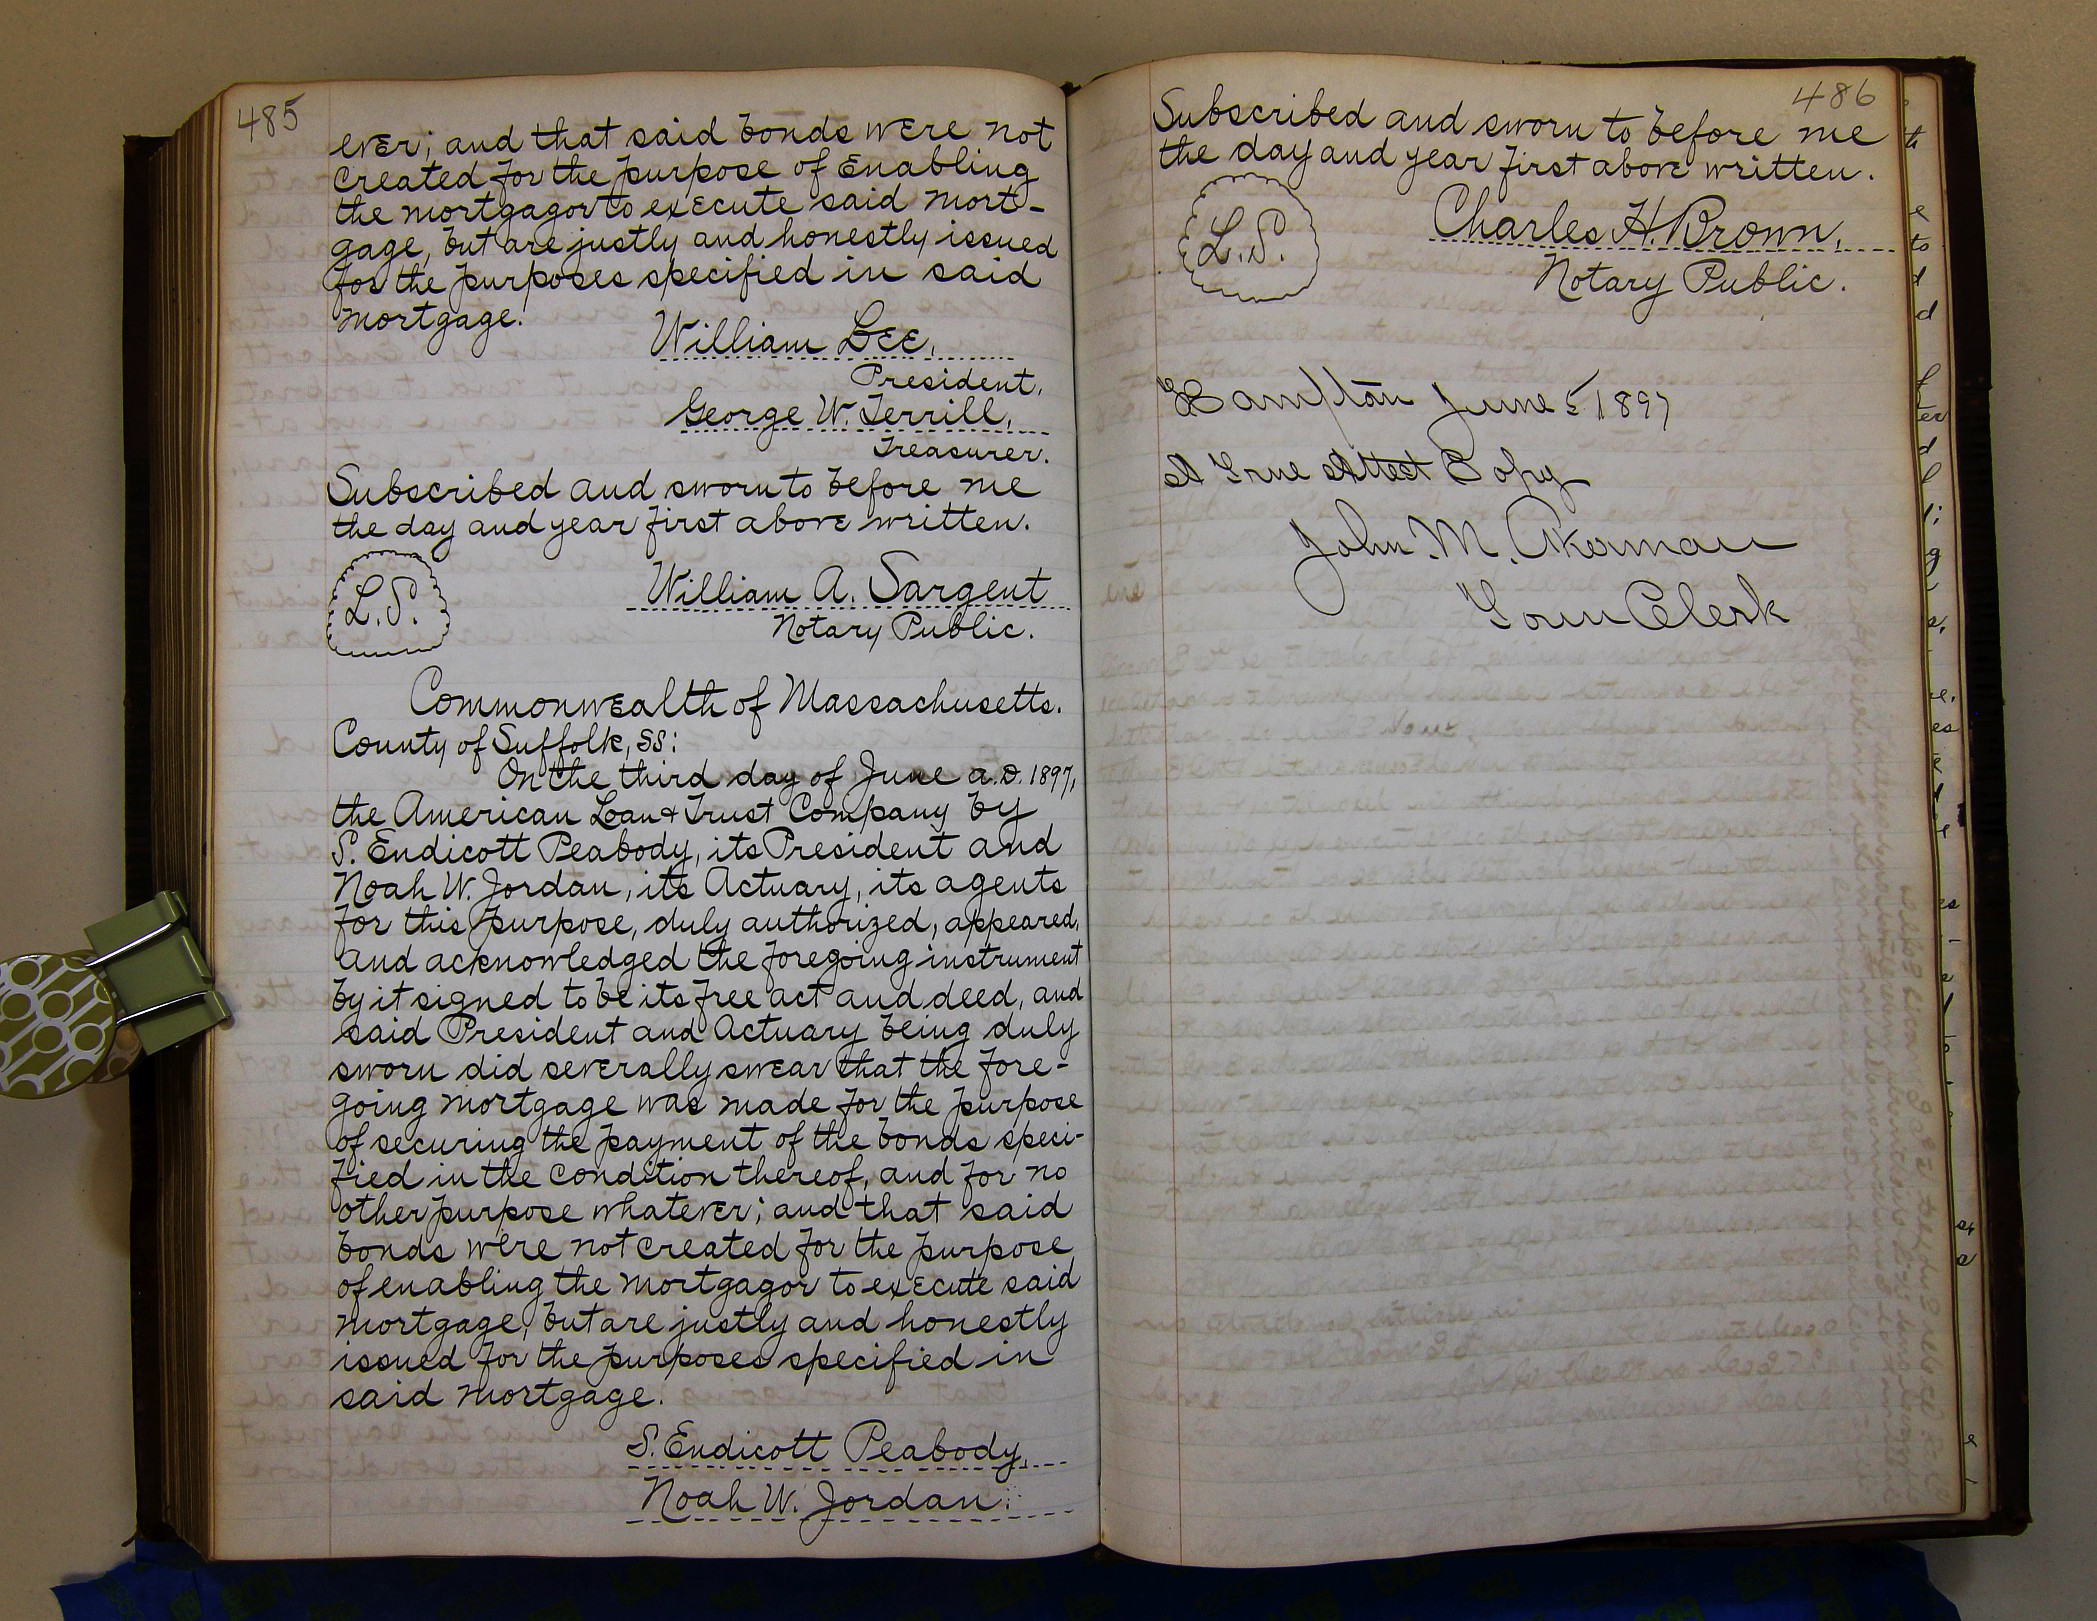 485
ever; and that said bonds were not
created for the purpose of enabling
the mortgagor to execute said mort-
gage, but are justly and honestly issued
for the purposes specified in said
mortgage.
William Lee,
President,
George W. Terrill,
Treasurer.
Subscribed and sworn to before me
the day and year first above written.
L.S.
William A. Sargent
Notary Public.
Commonwealth of Massachusetts.
County of Suffolk, ss:
On the third day of June a.D. 1897,
the American Loan & Trust Company by
S. Endicott Peabody, its President and
Noah W. Jordan, its Actuary, its agents
for this purpose, duly authorized, appeared,
and acknowledged the foregoing instrument
by it signed to be its free act and deed, and
said President and Actuary being duly
sworn did severally swear that the fore-
going mortgage was made for the purpose
of securing the payment of the bonds speci-
fied in the condition thereof, and for no
other purpose whatever; and that said
bonds were not created for the purpose
of enabling the mortgagor to execute said
mortgage, but are justly and honestly
issued for the purposes specified in
said mortgage.
S. Endicott Peabody,
Noah W. Jordan.
486
Subscribed and sworn to before me
the day and year first above written.
L.S.
Charles H. Brown,
Notary Public.
Hampton June 5 1897
A True Attest Copy
John M. Akerman
Town Clerk